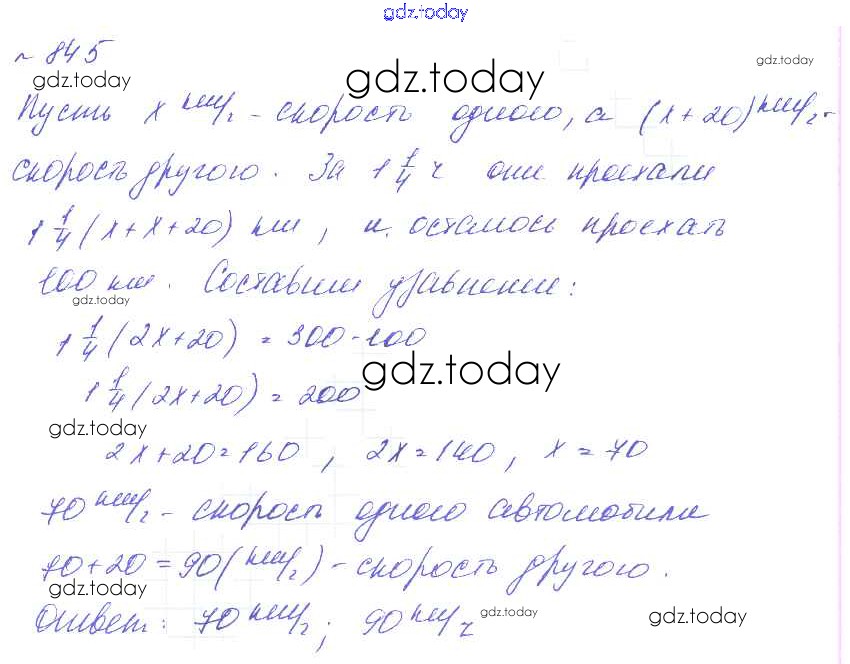 gdz.today
№ 845
gdz.today gdz.today gdz.today
Пусть x км/ч - скорость одного, а (x+20) км/ч -
скорость другого. За 1 1/4 ч они проехали
1 1/4 (x+x+20) км, и осталось проехать
100 км. Составим уравнение:
gdz.today
1 1/4 (2x+20) = 300-100
gdz.today
1 1/4 (2x+20) = 200
gdz.today
2x+20=160, 2x=140, x=70
70 км/ч - скорость одного автомобиля
70+20=90(км/ч) - скорость другого.
gdz.today
Ответ: 70 км/ч; 90 км/ч
gdz.today gdz.today